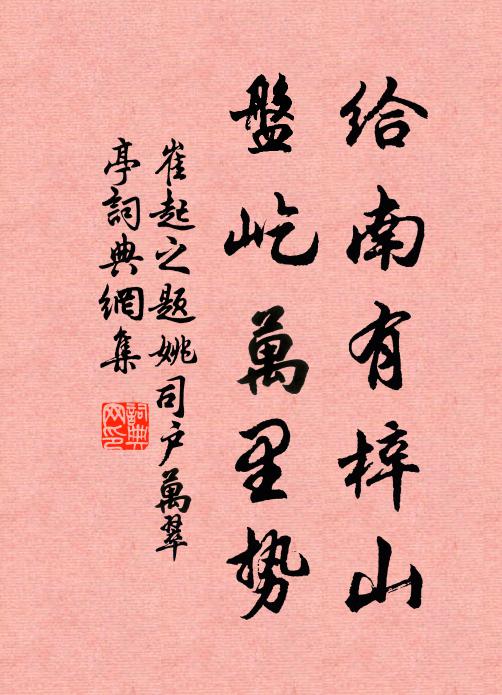 给南有梓山
盤屹萬里势
崔起之题姚司户萬翠
亭詞典網集
詞典网印